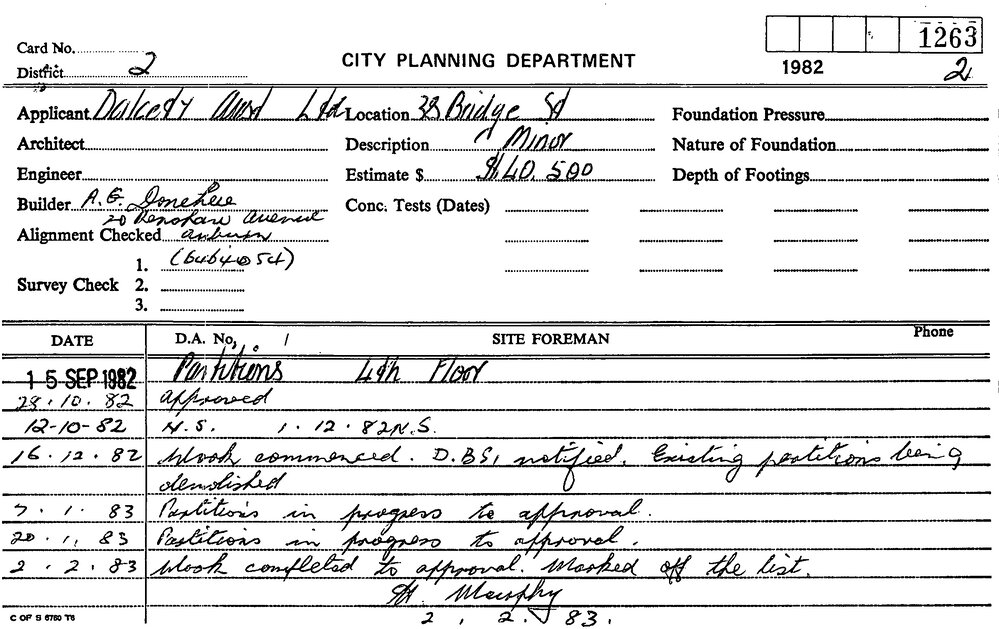 1263
Card No.
District 2
CITY PLANNING DEPARTMENT
1982
2
Applicant Dalgety Aust Ltd Location 38 Bridge St Foundation Pressure
Architect Description Minor Nature of Foundation
Engineer Estimate $ $40,500 Depth of Footings
Builder A.G. Donehue Conc. Tests (Dates)
20 Renshaw Avenue
Alignment Checked Auburn
1. (6464054)
Survey Check 2.
3.
DATE D.A. No. / SITE FOREMAN Phone
15 SEP 1982 Partitions 4th Floor
28.10.82 Approved
12-10-82 N.S. 1.12.82 N.S.
16.12.82 Work commenced. D.B.S. notified. Existing partitions being
demolished
7.1.83 Partitions in progress to approval.
20.1.83 Partitions in progress to approval.
2.2.83 Work completed to approval. Marked off the list.
Murphy
2.2.83.
C OF S 6760 T6